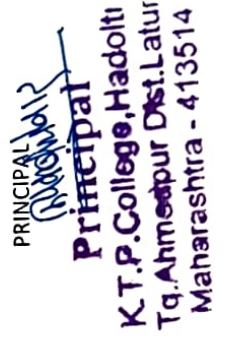 PRINCIPAL
Principal
K.T.P.College,Hadolti
Tq.Ahmedpur Dist.Latur
Maharashtra - 413514